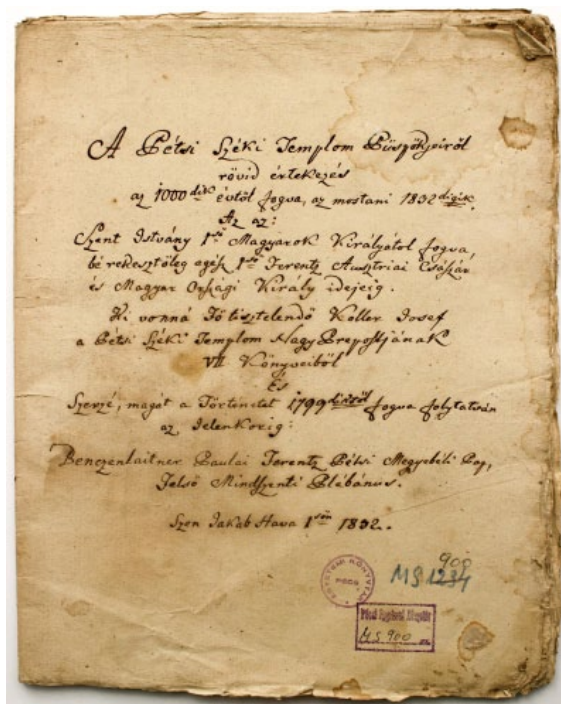 A Pétsi Széki Templom Püspökjeiről
rövid értekezés
az 1000dik évtől fogva, az mostani 1832dikik.
Az az:
Szent Istvány 1ső Magyarok Királyától fogva
bé rekesztőleg egész 1ső Ferentz Austriai Császár
és Magyar Országi Király idejeig.
Ki vonná Fő tisztelendő Koller Josef
a Pétsi Széki Templom Nagy Prepostjának
VII Könyveiből
És
Szerzé, magát a Történetet 1799dikről fogva folytatván
az Jelenkorig:
Benczenlaitner Paulai Ferentz Pétsi Megyebéli Pap,
Felső Mindszenti Plébánus.
Szen Jakab Hava 1sőn 1832.
EGYETEMI KÖNYVTÁR
PÉCS
900
MS 1234
MS. 900